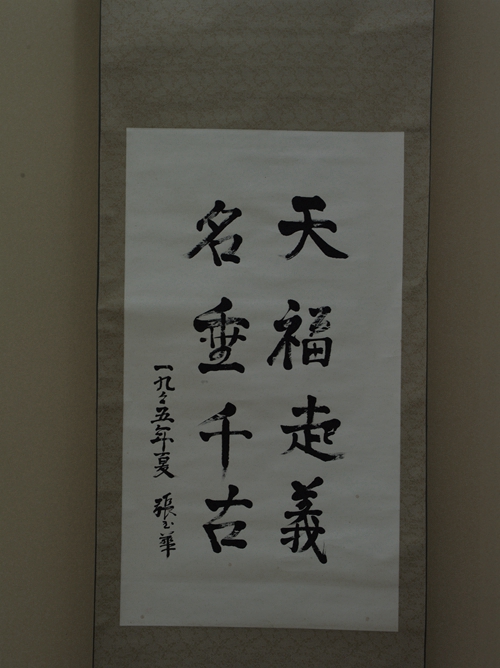 天福起義
名垂千古
一九九五年夏 張玉華